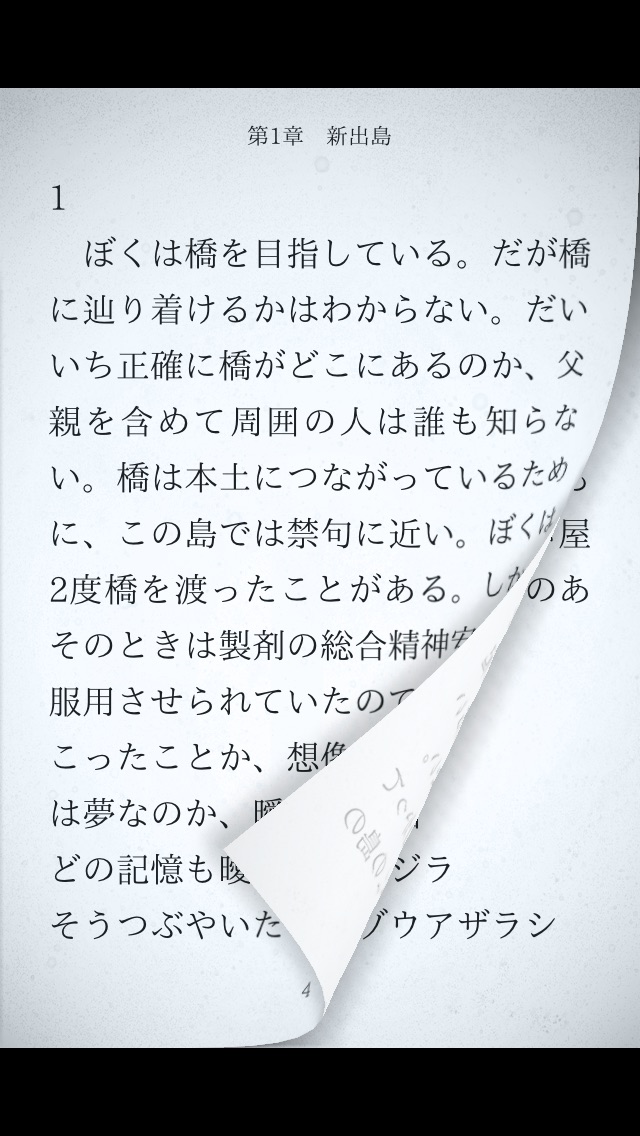 第1章　新出島
1
ぼくは橋を目指している。だが橋
に辿り着けるかはわからない。だい
いち正確に橋がどこにあるのか、父
親を含めて周囲の人は誰も知らな
い。橋は本土につながっているため
に、この島では禁句に近い。ぼくは 屋
2度橋を渡ったことがある。しか のあ
そのときは製剤の総合精神安
服用させられていたので
こったことか、想像
は夢なのか、曖
どの記憶も曖 ジラ
そうつぶやいた ゾウアザラシ
4